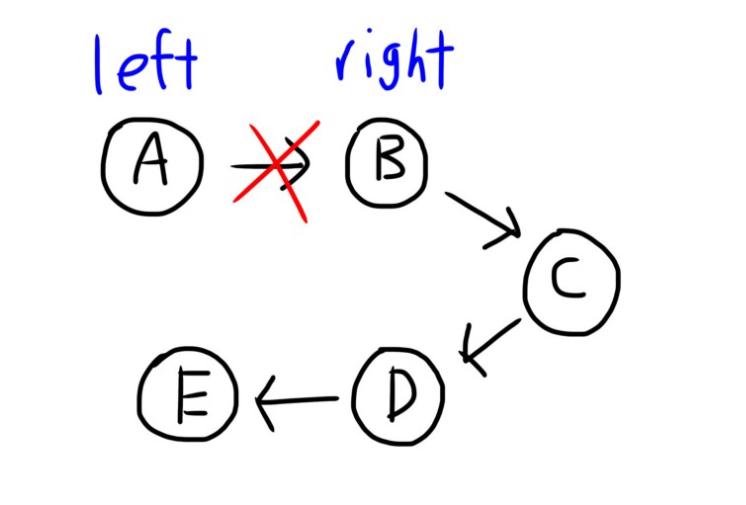 left right
A B
C
E D